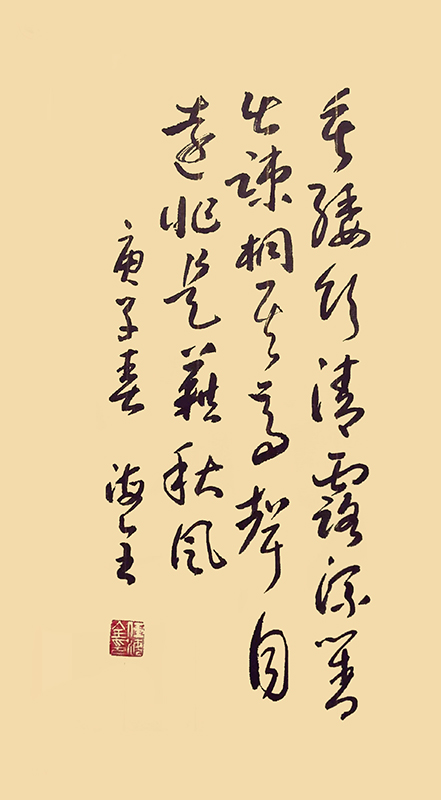 垂緌飲清露流響
出疎桐居高聲自
遠非是藉秋風
庚子春 海全